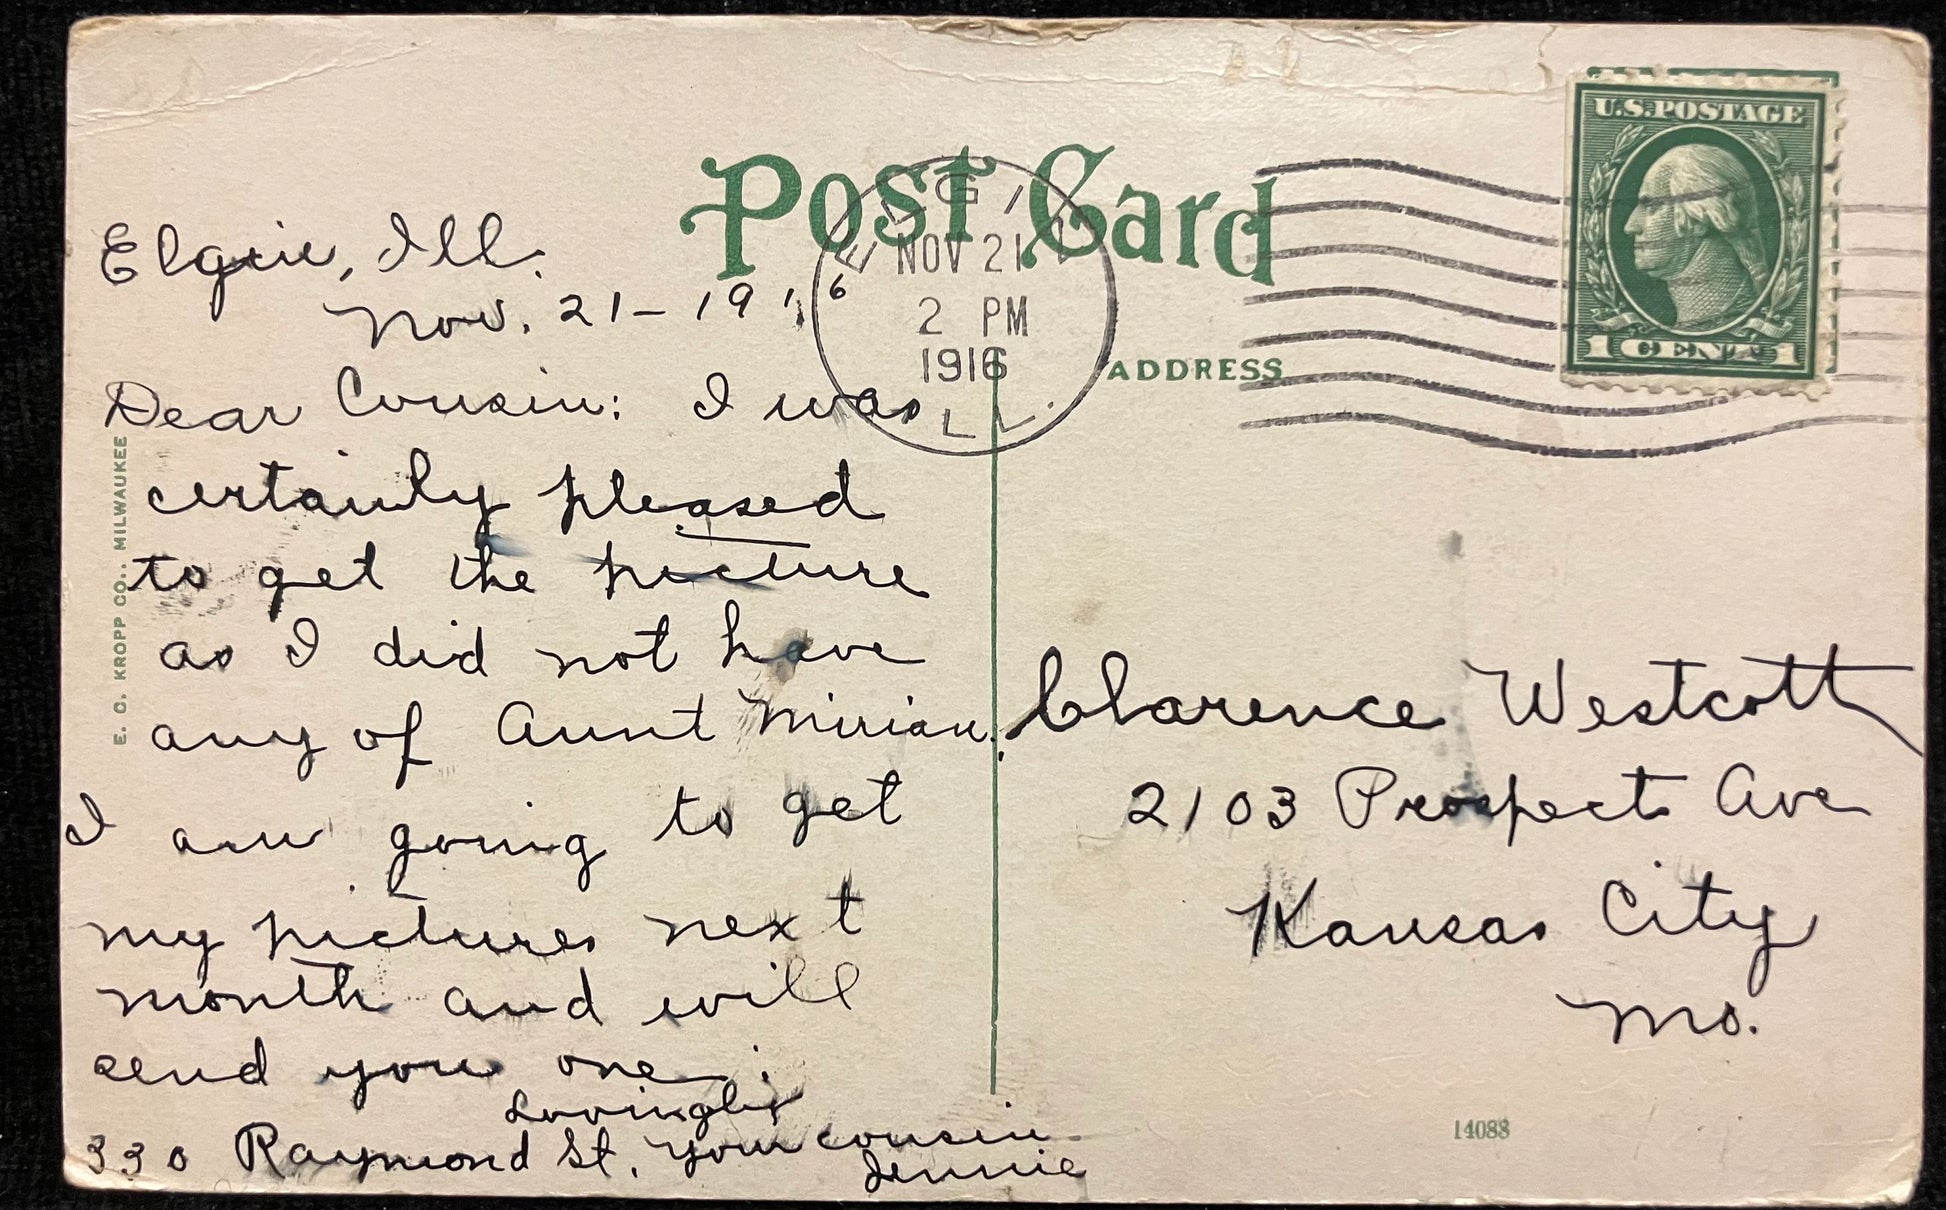 Post Card
U.S. POSTAGE
1 CENT 1
ELGIN
NOV 21
2 PM
1916
ILL.
ADDRESS
E. C. KROPP CO., MILWAUKEE
Elgin, Ill.
Nov. 21-1916
Dear Cousin: I was
certainly pleased
to get the picture
as I did not have
any of Aunt Miriam.
I am going to get
my pictures next
month and will
send you one.
Lovingly
330 Raymond St. Your cousin
Jennie
Clarence Westcott
2103 Prospect Ave
Kansas City
Mo.
14088